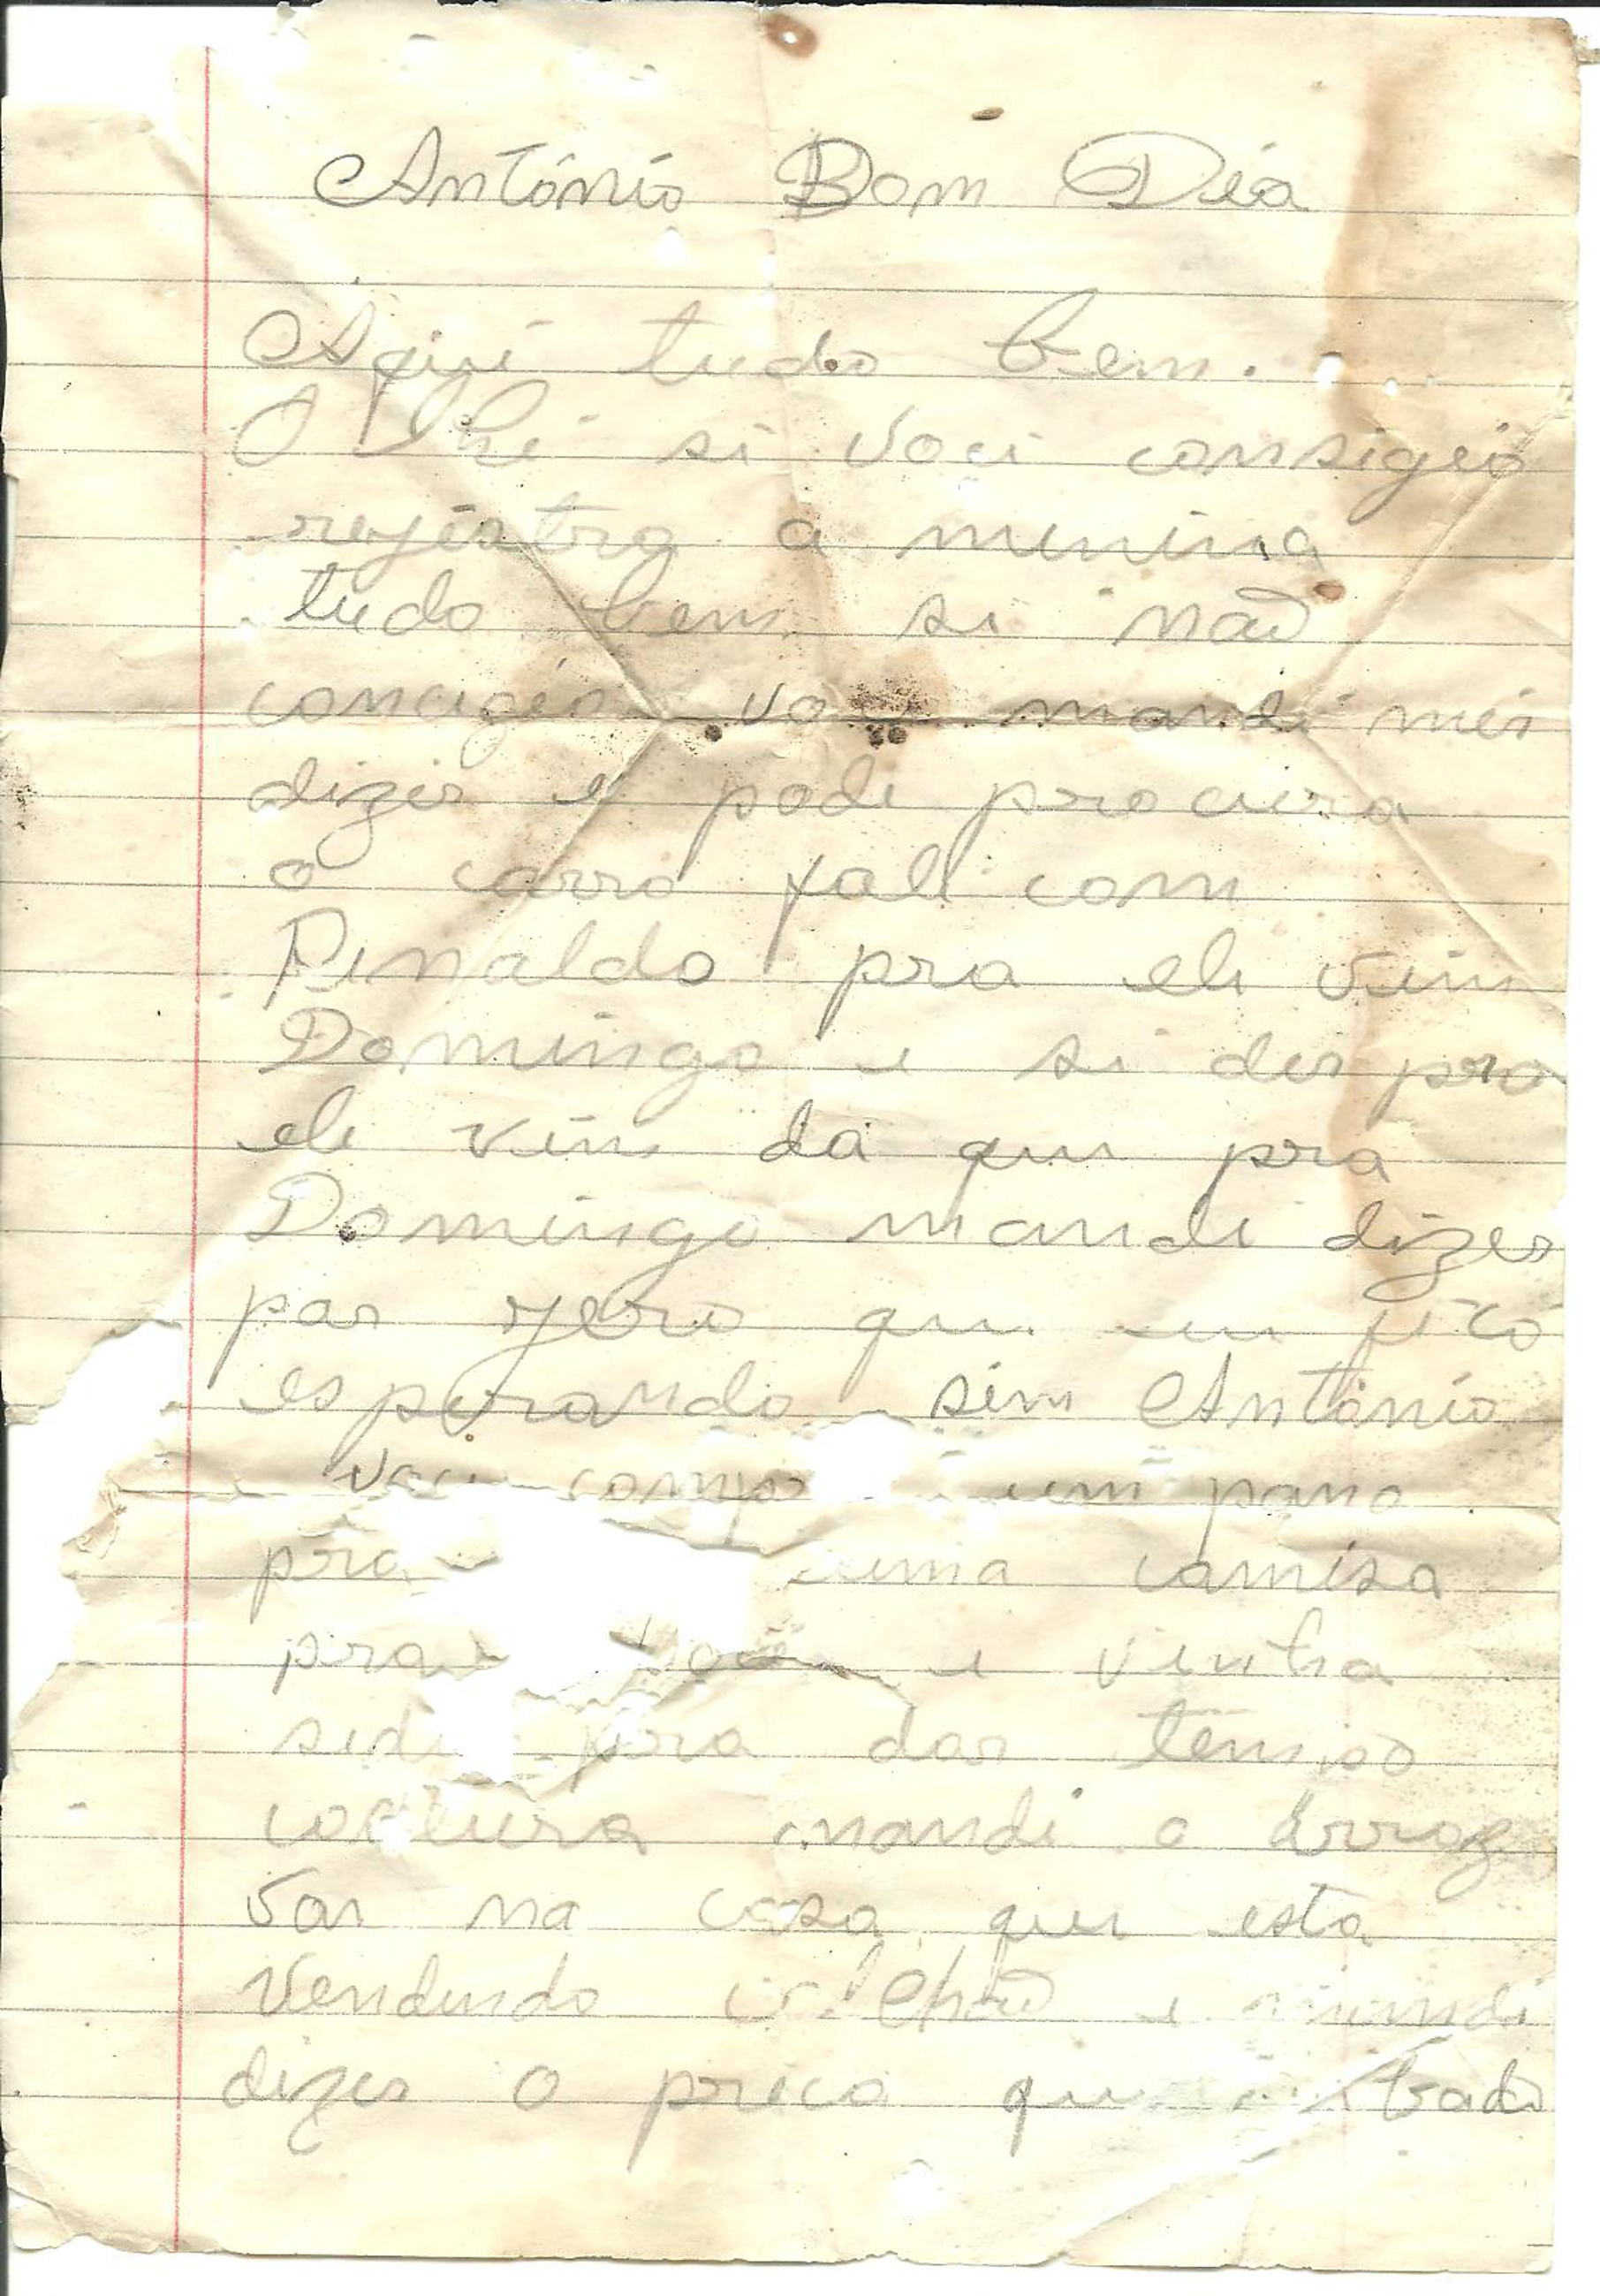 António Bom Dia
Aqui tudo bem.
Olhi si voci consigio
rejistra a minina
tudo bem si não
concigio voci mandi mir
dizer e podi procura
o carro fali com
Rinaldo pra eli vim
Domingo i si der pra
eli vim da qui pra
Domingo mandi dizer
par que eu ficó
esperando sim António
voci comp um pano
pra uma camisa
pra você i venha
sedi pra dar tempo
costura mandi o
vai na casa qui esta
vendendo colchão e mandi
dizer o preço qui